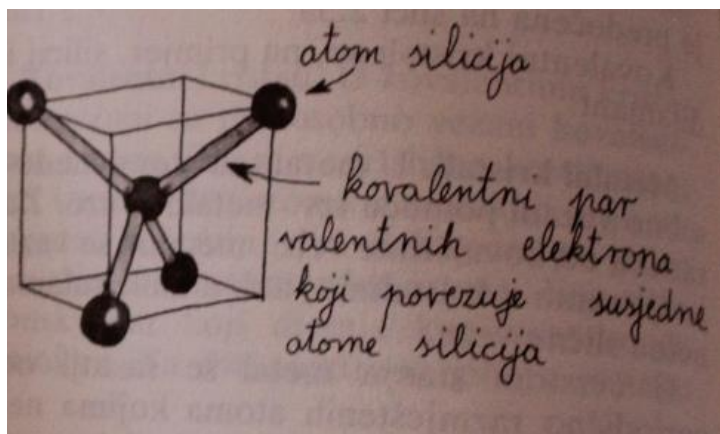 atom silicija
kovalentni par
valentnih elektrona
koji povezuje susjedne
atome silicija